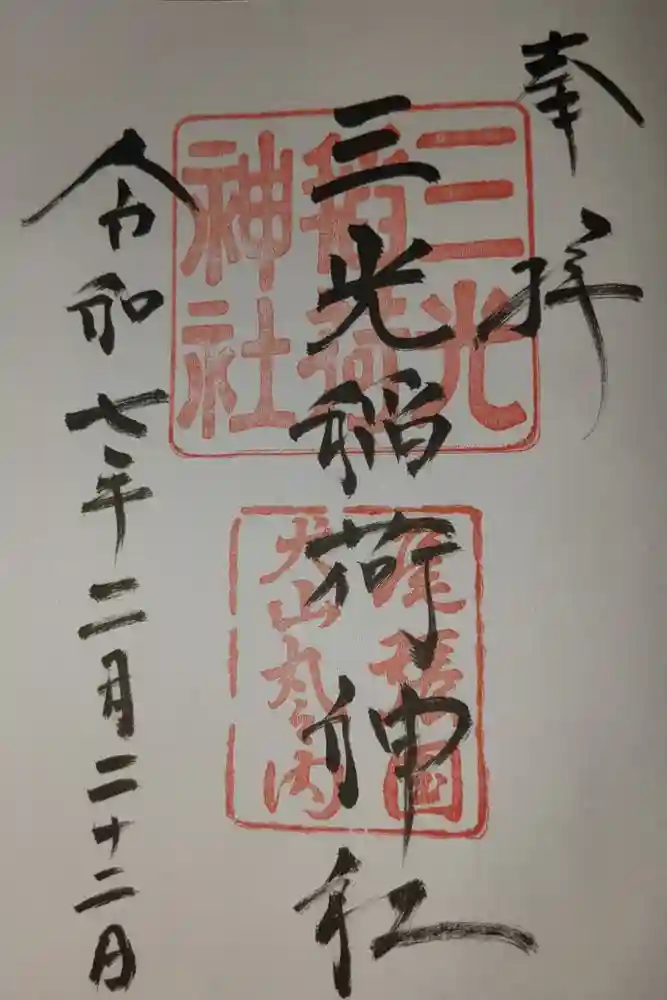 奉拝
三光稲荷神社
令和七年二月二十二日
三光
稲荷
神社
尾張国
犬山丸之内